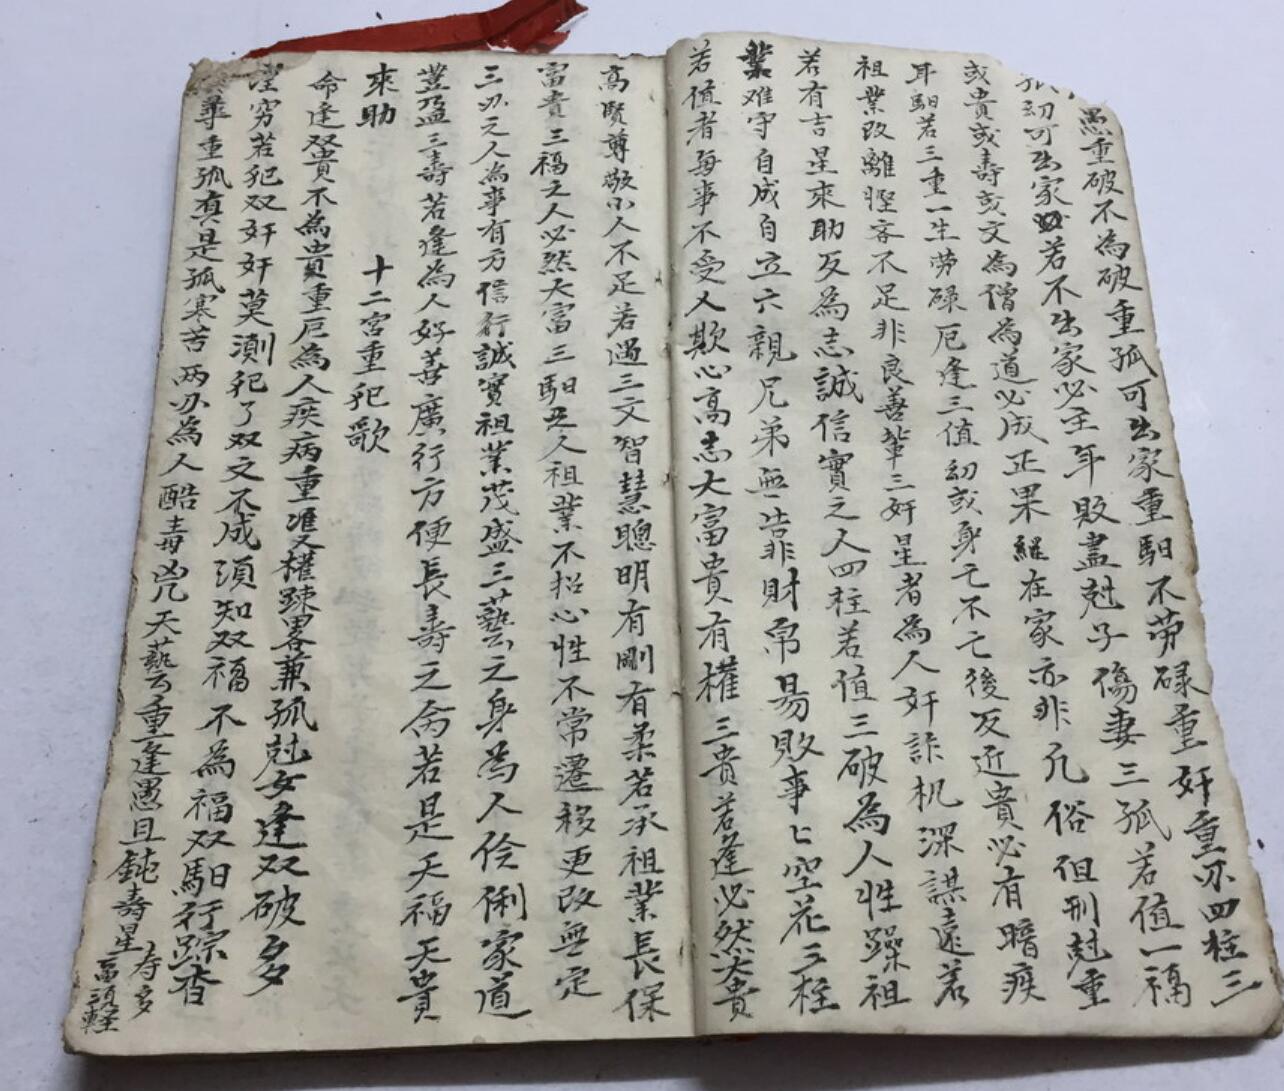 愚重破不為破重孤可出家重馹不劳碌重奸重刃四柱三
孤刧可出家若不出家必主年敗盡尅子傷妻三孤若值一福
或貴或壽或文為僧為道必成正果縱在家亦非凡俗但刑尅重
耳馹若三重一生劳碌厄逢三值刧或身亡不亡後反近貴必有暗疾
祖業改離慳吝不足非良善輩三奸星者為人奸詐机深謀遠若
若有吉星來助反為志誠信實之人四柱若值三破為人性躁祖
業难守自成自立六親兄弟無靠財帛易敗事匕空花三柱
若值者每事不受人欺心高志大富貴有權三貴若逢必然大貴
高賢尊敬小人不足若遇三文智慧聰明有剛有柔若承祖業長保
富貴三福之人必然大富三馹之人祖業不招心性不常遷移更改無定
三刃之人為事有方信行誠實祖業茂盛三藝之身為人伶俐家道
豊盈三壽若逢為人好善廣行方便長壽之命若是天福天貴
來助 十二宮重犯歌
命逢双貴不為貴重厄為人疾病重逢双權踈畧兼孤尅女逢双破多
望穷若犯双奸奸莫測犯了双文不成須知双福不為福双馹行踪杳
重孤真是孤寒苦两刃為人酷毒凶天藝重逢愚且鈍壽星
寿多